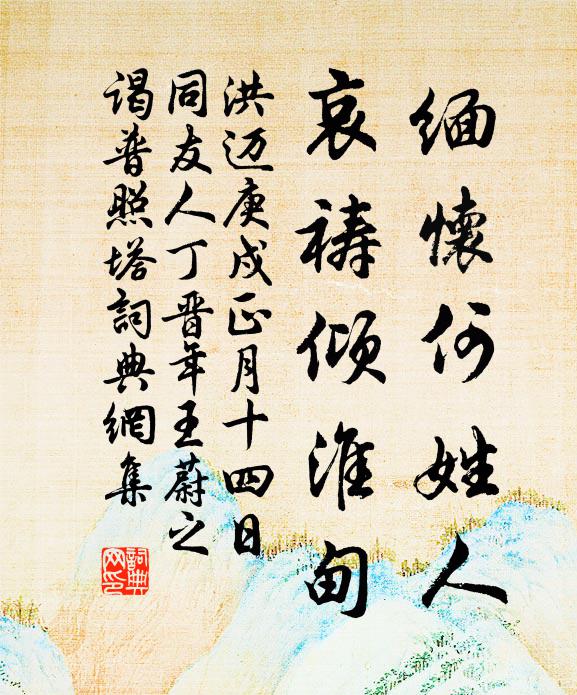 缅懷何姓人
哀祷倾淮甸
洪迈庚戌正月十四日
同友人丁晋年王蔚之
谒普照塔詞典網集
詞典
网印